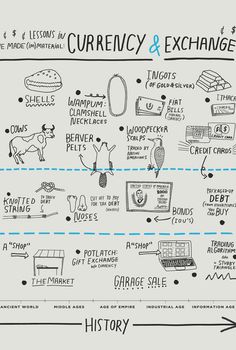 ¢ $ ¢ LESSONS in
E MADE (im)MATERIAL:
CURRENCY & EXCHANGE
¢ $
SHELLS
WAMPUM:
CLAMSHELL
NECKLACES
INGOTS
(of GOLD & SILVER)
FIAT
BILLS
ITHACA
COWS
BEAVER
PELTS
WOODPECKER
SCALPS
TRADED BY
AMERICANS
CREDIT CARDS
KNOTTED
STRING
NOSES
CUT OFF TO PAY
FOR TAX DEBT
BONDS
(IOU'S)
DEBT
YOU CAN
BUY
A "SHOP"
THE MARKET
POTLATCH:
GIFT EXCHANGE
AS CURRENCY
A "SHOP"
GARAGE SALE
TRADING
ALGORITHM
ANCIENT WORLD
MIDDLE AGES
AGE OF EMPIRE
INDUSTRIAL AGE
INFORMATION AGE
HISTORY